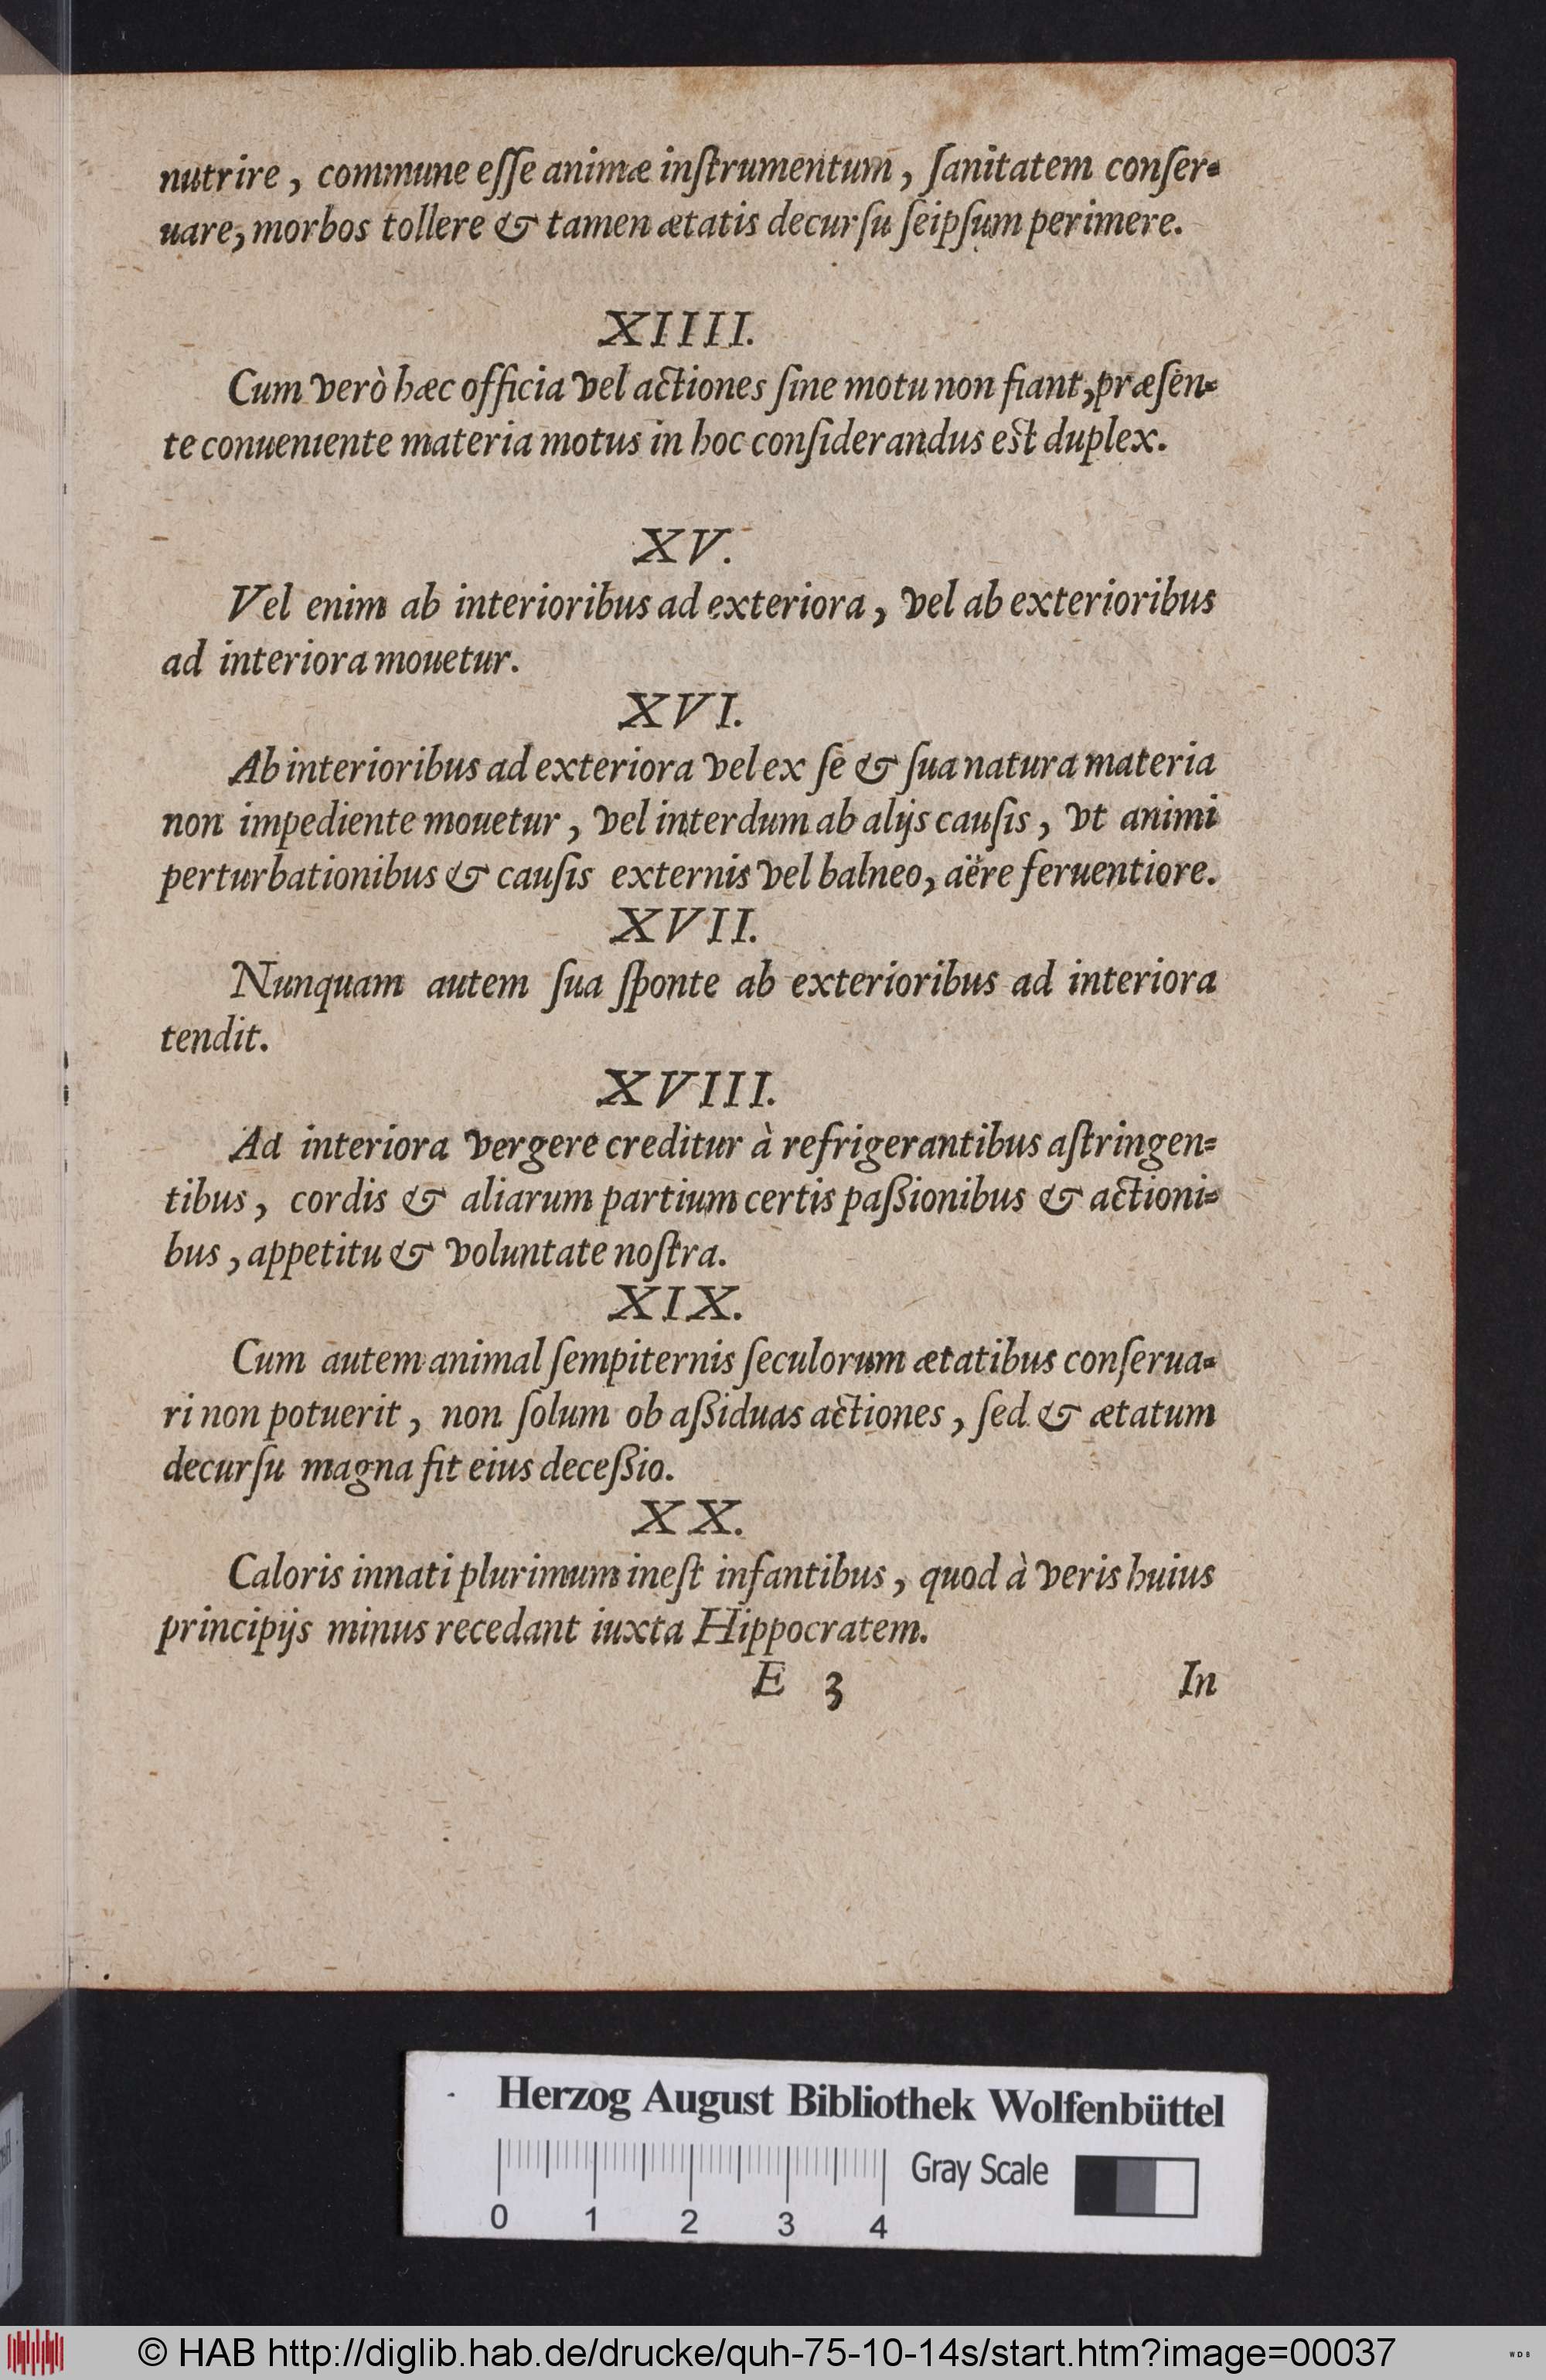 nutrire, commune eſſe animæ inſtrumentum, ſanitatem conſer-
uare, morbos tollere & tamen ætatis decurſu ſeipſum perimere.
XIIII.
Cum verò hæc officia vel actiones ſine motu non fiant, præſen-
te conueniente materia motus in hoc conſiderandus eſt duplex.
XV.
Vel enim ab interioribus ad exteriora, vel ab exterioribus
ad interiora mouetur.
XVI.
Ab interioribus ad exteriora vel ex ſe & ſua natura materia
non impediente mouetur, vel interdum ab alijs cauſis, vt animi
perturbationibus & cauſis externis vel balneo, aëre feruentiore.
XVII.
Nunquam autem ſua ſponte ab exterioribus ad interiora
tendit.
XVIII.
Ad interiora vergere creditur à refrigerantibus aſtringen-
tibus, cordis & aliarum partium certis paßionibus & actioni-
bus, appetitu & voluntate noſtra.
XIX.
Cum autem animal ſempiternis ſeculorum ætatibus conſerua-
ri non potuerit, non ſolum ob aßiduas actiones, ſed & ætatum
decurſu magna fit eius deceßio.
XX.
Caloris innati plurimum ineſt infantibus, quod à veris huius
principijs minus recedant iuxta Hippocratem.
E 3 In
Herzog August Bibliothek Wolfenbüttel
Gray Scale
0 1 2 3 4
© HAB http://diglib.hab.de/drucke/quh-75-10-14s/start.htm?image=00037